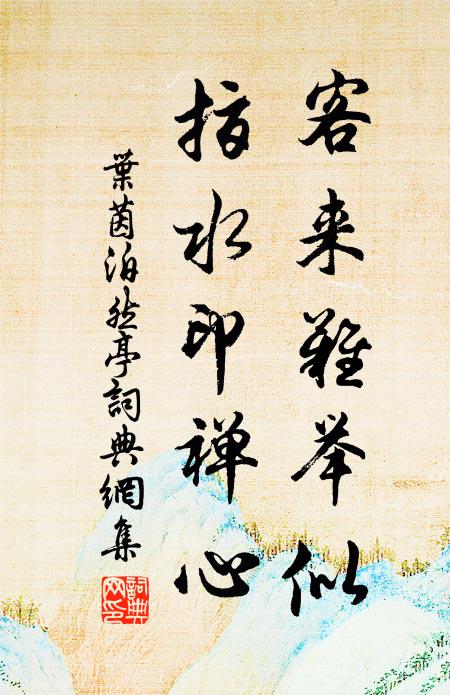 客来難举似
指水印禅心
葉茵泊然亭詞典網集
詞典网印